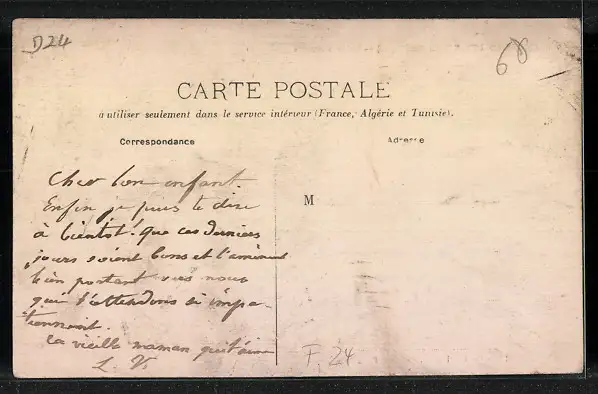 D24
68
CARTE POSTALE
à utiliser seulement dans le service intérieur (France, Algérie et Tunisie).
Correspondance
Adresse
Cher bon enfant.
Enfin je puis te dire
à bientôt! Que ces derniers
jours soient bons et t'amènent
bien portant vers nous
qui t'attendons si impa-
tiemment.
ta vieille maman qui t'aime
L. V.
M
F 24